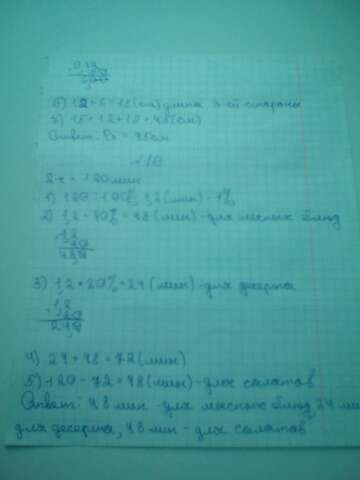 6) 12+6=18(см) длина 3-ей стороны
7) 15+12+18=45(см)
Ответ: P₀=45см
№10
2ч=120мин
1) 120:100%=1,2(мин)-1%
2) 1,2*40%=48(мин)-для мясных блюд
1,2
40
48,0
3) 1,2*20%=24(мин)-для десерта
1,2
20
24,0
4) 24+48=72(мин)
5) 120-72=48(мин)-для салатов
Ответ: 48 мин-для мясных блюд, 24 мин
для десерта, 48 мин-для салатов